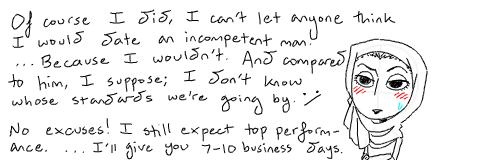 Of course I did, I can't let anyone think
I would date an incompetent man.
... Because I wouldn't. And compared
to him, I suppose; I don't know
whose standards we're going by. :/
No excuses! I still expect top perform-
ance. ... I'll give you 7-10 business days.